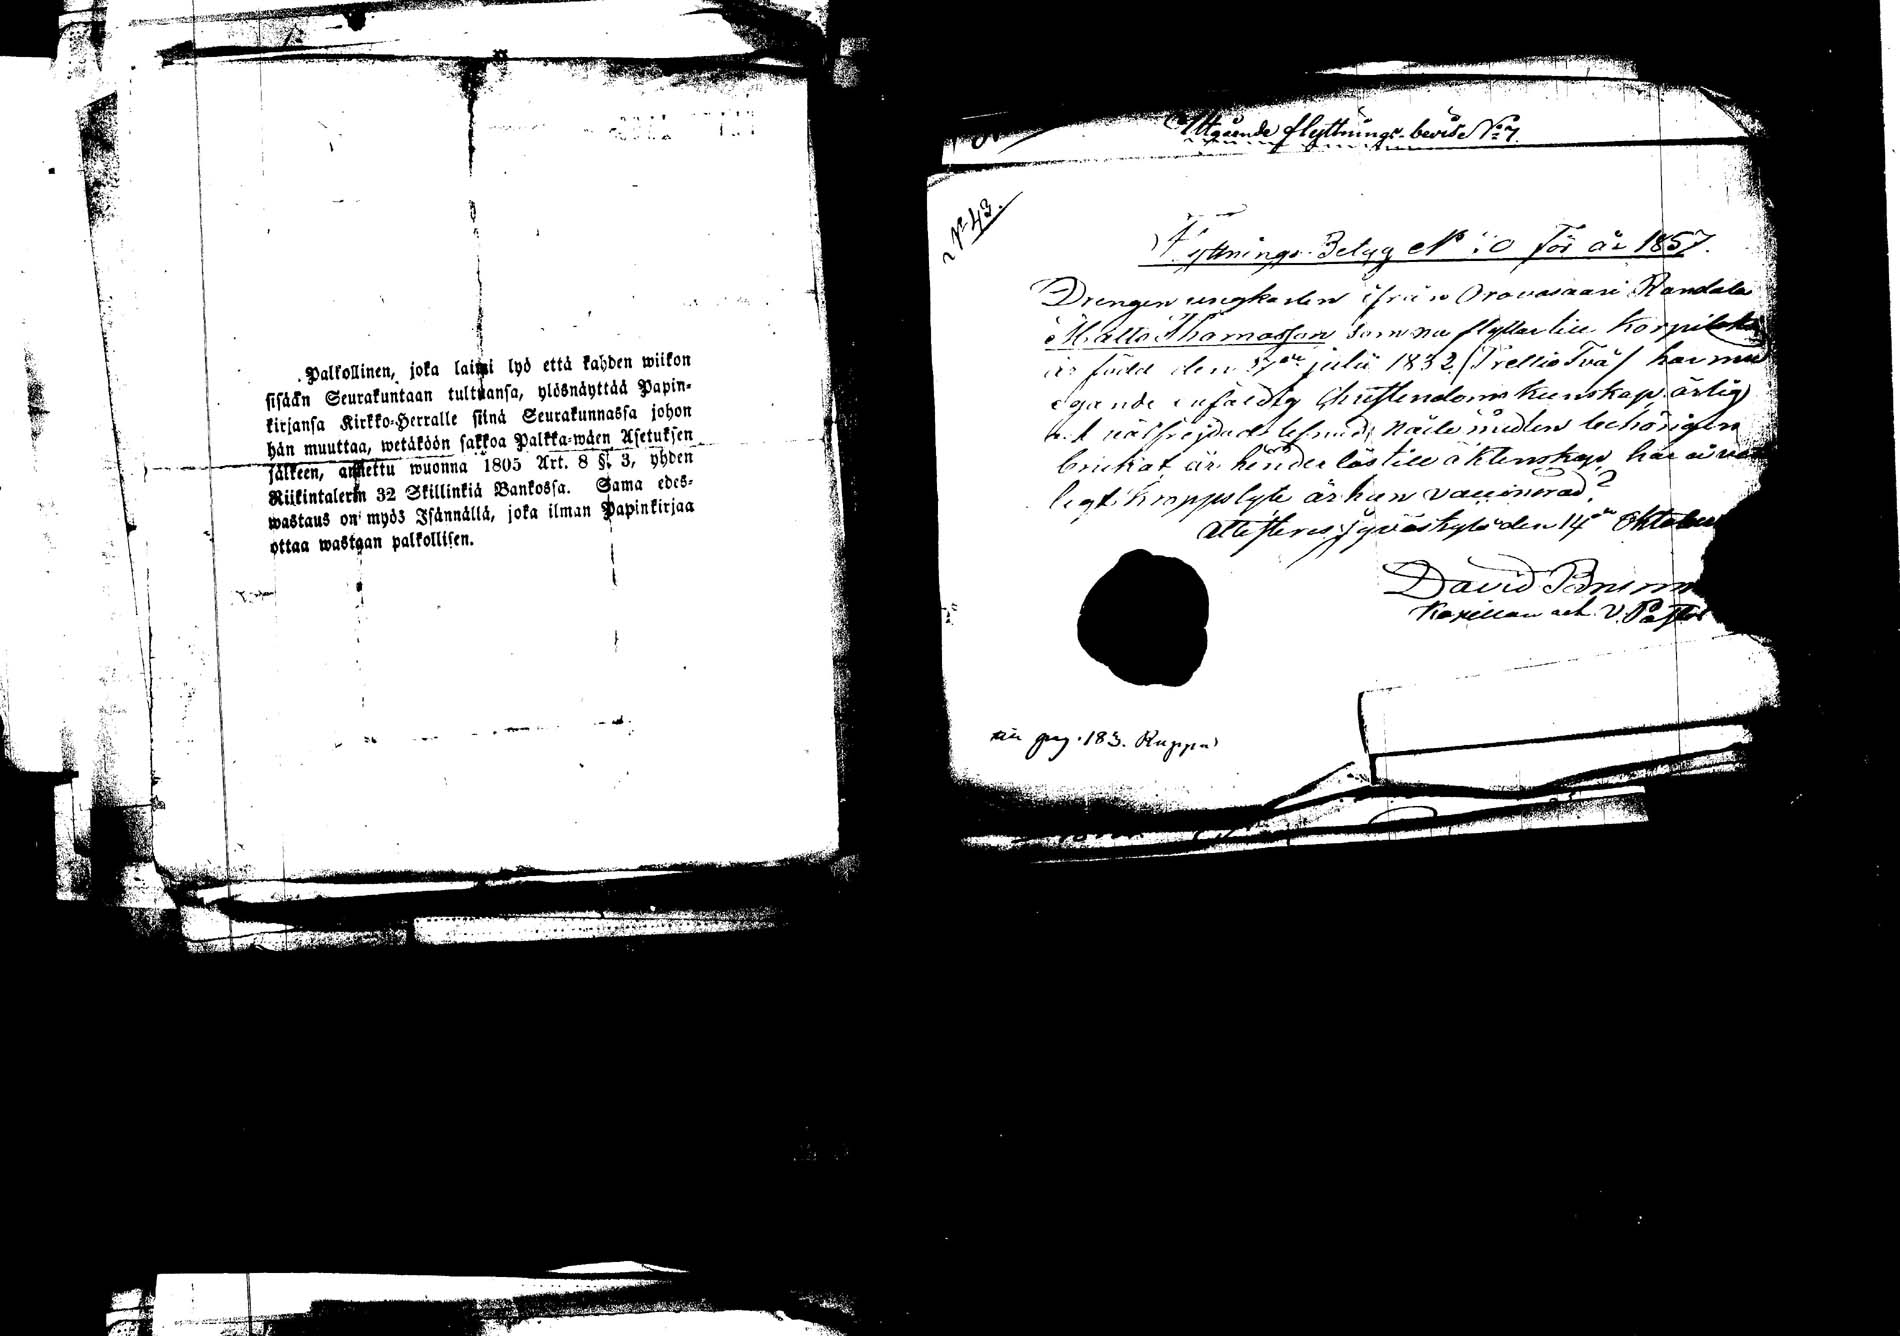 Palkollinen, joka laimi lyö että kahden wiikon
sisään Seurakuntaan tultuansa, ylösnäyttää Papin-
kirjansa Kirkko-Herralle siinä Seurakunnassa johon
hän muuttaa, wetäköön sakkoa Palkka-wäen Asetuksen
jälkeen, annettu wuonna 1805 Art. 8 §. 3, yhden
Riikintalerin 32 Skillinkiä Bankossa. Sama edes-
wastaus on myös Isännällä, joka ilman Papinkirjaa
ottaa wastaan palkollisen.
Utgående flyttnings-bevis No 7.
No 43.
Flyttnings-Betyg No för år 1857.
Drengen ungkarlen ifrån Oravasaari Randala
Matts Thomasson som nu flyttar till Korpilaks
är född den juli 1832 (Trettio Två) har
egande enfaldig Christendoms kunskap ärlig
välfrejdad lefnad, Nåde medlen behörigen
brukat är hinderlös till äktenskap har
ligt kroppslyte är han vaccinerad?
Attesteras Jyväskylä den 14 Oktober
David
Kapellan och V. Pastor
pag. 183. Ruppa